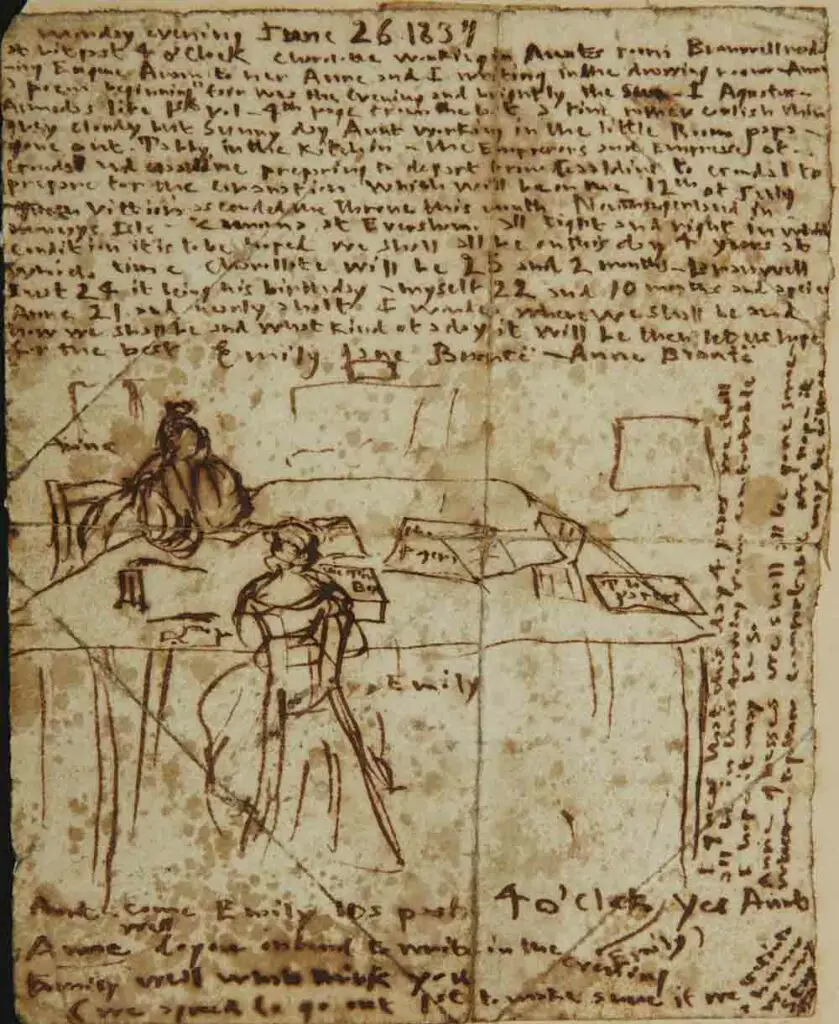 Monday evening June 26 1837
A bit past 4 o'Clock Charolotte working in Aunts room Branwell reading
Eugene Aram to her Anne and I writing in the drawing room Anne
a poem beginning "fair was the evening and brightly the Sun - I Agustus-
Almedas life 1st vol - 4th page from the last a fine rather coolish thin
grey cloudy but Sunny day Aunt working in the little Room papa-
gone out. Tabby in the Kitchin - the Emperors and Empreses of
Gondal and Gaaldine preparing to depart from Gaaldine to Gondal to
prepare for the coranation which will be on the 12th of July
Queen Vittiora ascended the throne this month. Northangerland in
Monceys Isle - Zamorna at Eversham. all tight and right in which
condition it is to be hoped we shall all be on this day 4 years at
which time Charollote will be 25 and 2 months - Branwell
just 24 it being his birthday - myself 22 and 10 months and a peice
Anne 21 and nearly a half I wonder where we shall be and
how we shall be and what kind of a day it will be then let us hope
for the best
Emily Jane Brontë - Anne Brontë
Anne
The
papers
The
Box
The
papers
Emily
I guess that this day 4 years we shall
all be in this drawing room comfortable
I hope it may be so
Anne guesses we shall all be gone somewhere
together comfortable We hope it
may be
Aunt. come Emily Its past 4 o'Clock
Emily) Yes Aunt
Anne well do you intend to write in the evening
Emily well what think you
(we agreed to go out 1st to make sure if we